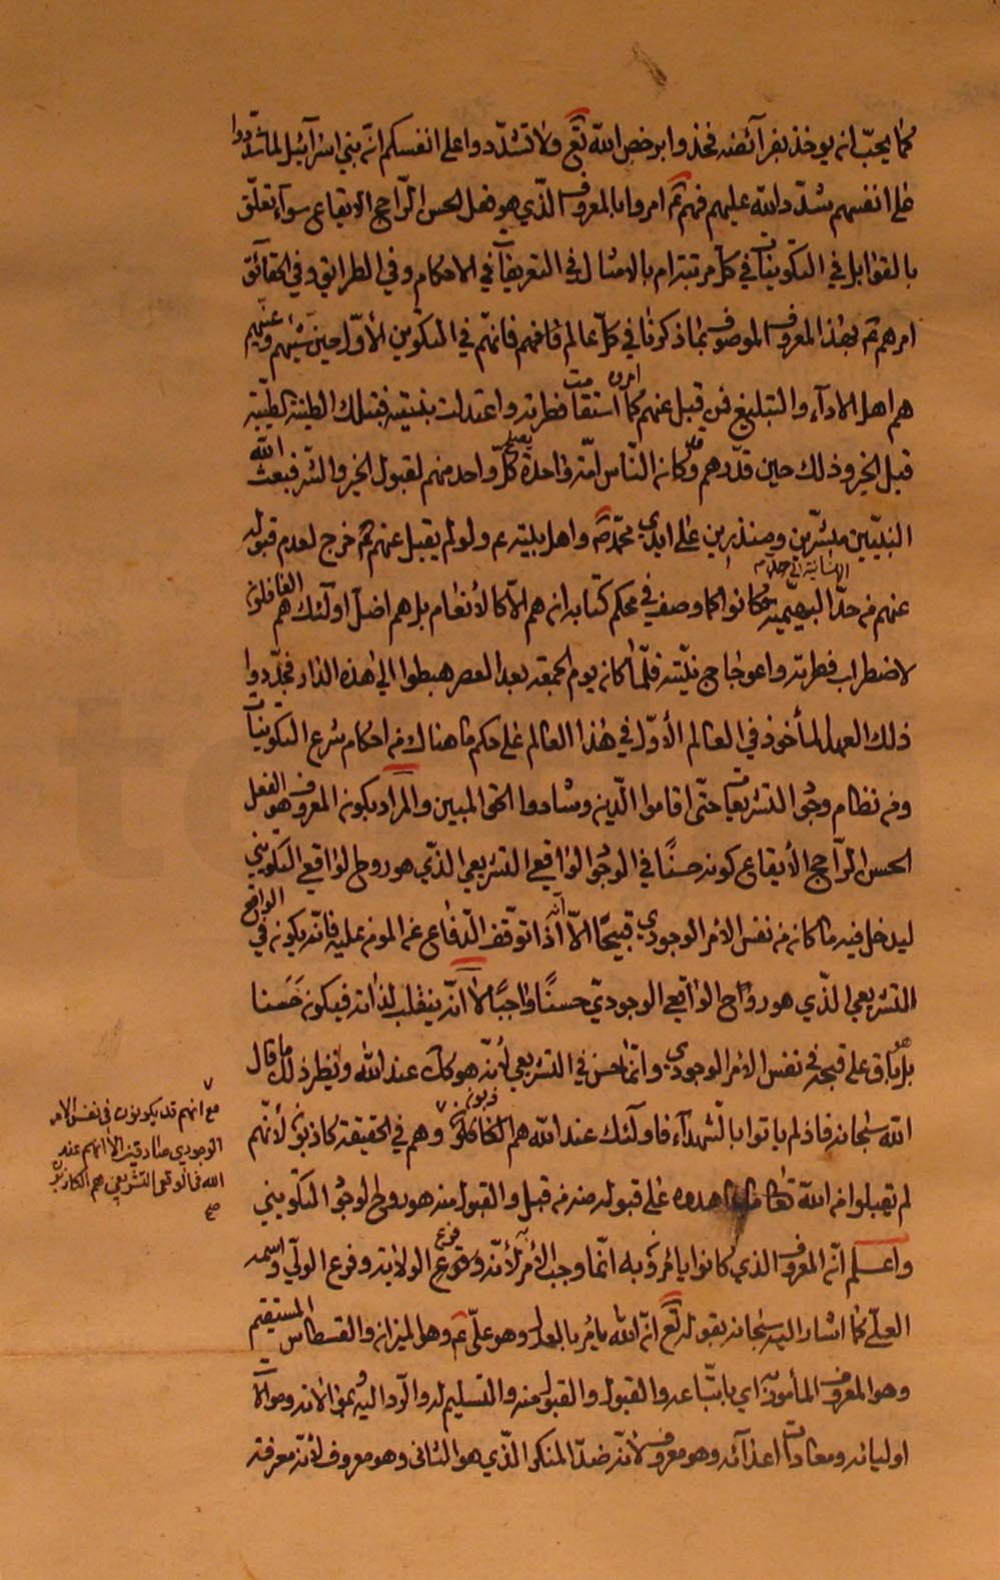 كما يحبّ ان يوخذ بفرآئضه فخذوا برخص الله تع ولا تشدّدوا على انفسكم انّ بني اسرآئيل لما شدّدوا
على انفسهم شدّد الله عليهم فهم ع امروا بالمعروف الذّي هو فعل الحسن الرّاجح الايقاع سوآء تعلّق
بالقوابل في التكوينات في كلّ مرتبة ام بالامتثال في التعريفات في الاحكام وفي الطرايق وفي الحقآئق
امرهم ع بهذا المعروف الموصوف بما ذكرنا في كلّ عالم فافهم فانّهم في التكوين الأوّل حين
هم اهل الادآء والتبليغ فمن قبل عنهم كما امرت استقامت فطرته واعتدلت بنيته فبتلك الطينة الطيّبة
قبل الخير وذلك حين قدّرهم وكان النّاس امّة واحدة يصلح كلّ واحد منهم لقبول الخير والشر فبعث الله
النبيّين مبشّرين ومنذرين على ايدي محمّد ص واهل بيته ع ولو لم يقبل عنهم ع خرج لعدم قبوله
عنهم من حدّ الانسانيّة الى البهيميّة وكانوا كما وصف في محكم كتابه ان هم الاّ كالأنعام بل هم اضلّ اولئك هم الغافلون
لاضطراب فطرته واعوجاج نيّته فلمّا كان يوم الجمعة بعد العصر هبطوا الى هذه الدار فجدّدوا
ذلك العهد المأخوذ في العالم الأوّل في هذا العالم على حكم ما هناك من احكام شرع التكوينات
ومن نظام وجود التشريعات حتّى اقاموا الدّين وشادوا الحق المبين والمراد بكون المعروف هو الفعل
الحسن الرّاجح الأيقاع كونه حسنًا في الوجود الواقعي التشريعي الذّي هو روح الواقعي التكويني
ليدخل فيه ما كان من نفس الامر الوجودي قبيحًا الاّ انّه اذا توقف الدّفاع عن المؤمن عليه فانّه يكون في الواقع
التشريعي الذّي هو روح الواقعي الوجوديّ حسنًا واجبًا لا انّه ينقلب لذاته فيكون حَسَنا
بل هو باق على قبحه في نفس الامر الوجودي وانّما حسن في التشريعي لأنّه هو كك عند الله ونظير ذلك ما قال
الله سبحانه فاذ لم ياتوا بالشّهدآء فاولئك عند الله هم الكاذبون وهم في الحقيقة كاذبون لأنّهم
لم يقبلوا من الله تعا ما عاهدوه على قبوله منه من قبل والقبول منه هو روح الوجود التكويني
واعلم انّ المعروف الذي كانوا يامرون به انّما وجب الأمر به لأنّه من فروع الولاية وفروع الوليّ واسمه
العليّ كما اشار اليه سبحانه بقوله تع انّ الله يامر بالعدل وهو عليّ ع وهو الميزان والقسطاس المستقيم
وهو المعروف المأمور به اي باتّباعه والقبول والقبول منه والتسليم له والرّد اليه وموالاته وموالاة
اوليائه ومعادات اعدآئه وهو معروف لانّه ضدّ المنكر الذّي هو الثاني وهو معروف لأنّه معرفة
مع انهم قد يكونون في نفس الامر
الوجودي صادقين الا انهم عند
الله في الواقعي التشريعي هم الكاذبون
صح